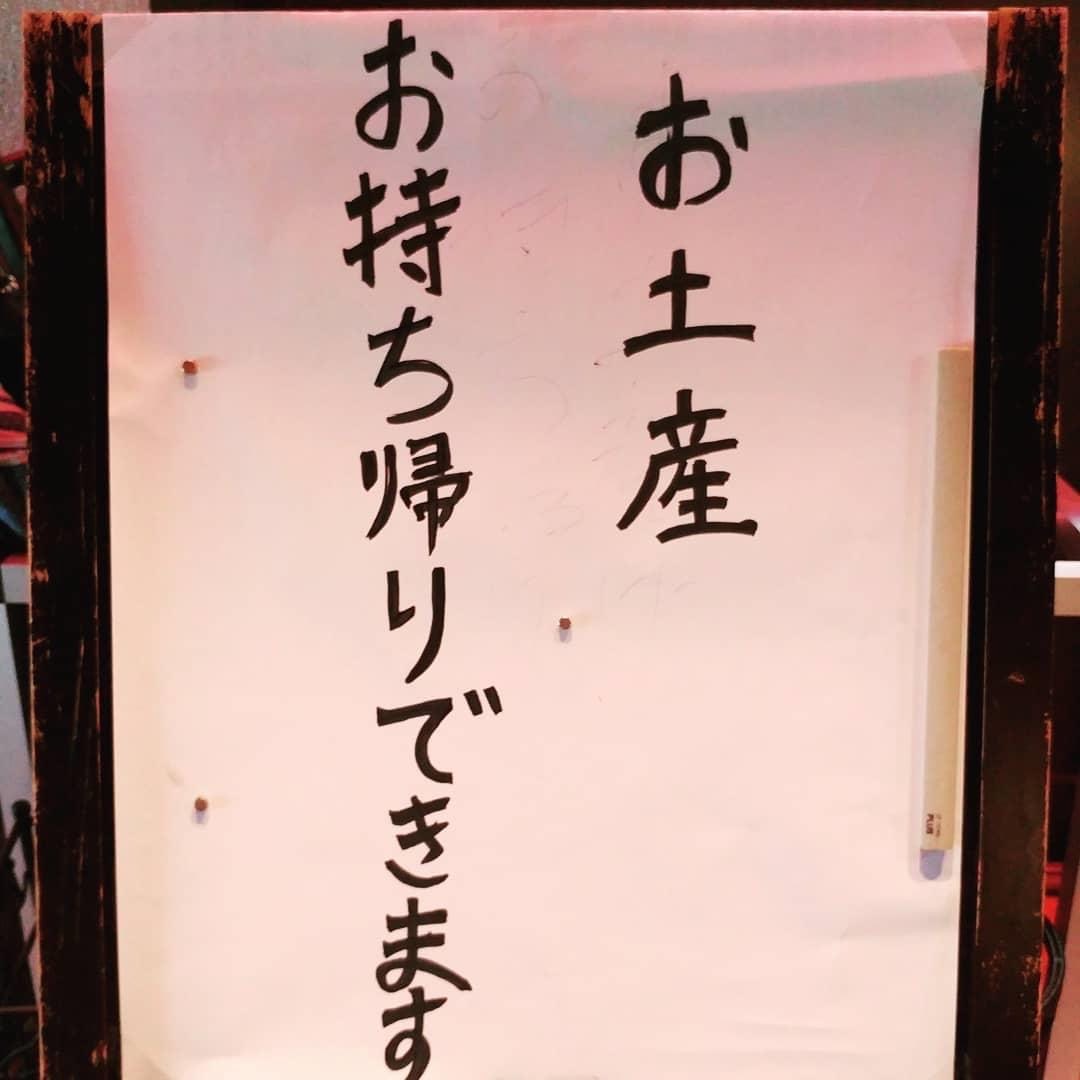 お土産
お持ち帰りできます
PLUS